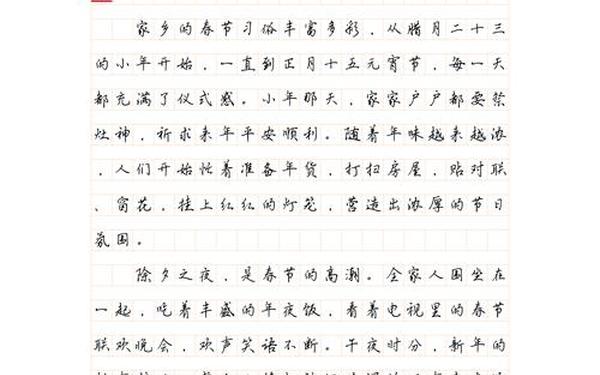 家乡的春节习俗丰富多彩，从腊月二十三
的小年开始，一直到正月十五元宵节，每一天
都充满了仪式感。小年那天，家家户户都要祭
灶神，祈求来年平安顺利。随着年味越来越浓
，人们开始忙着准备年货，打扫房屋，贴对联
、窗花，挂上红红的灯笼，营造出浓厚的节日
氛围。
除夕之夜，是春节的高潮。全家人围坐在
一起，吃着丰盛的年夜饭，看着电视里的春节
联欢晚会，欢声笑语不断。午夜时分，新年的